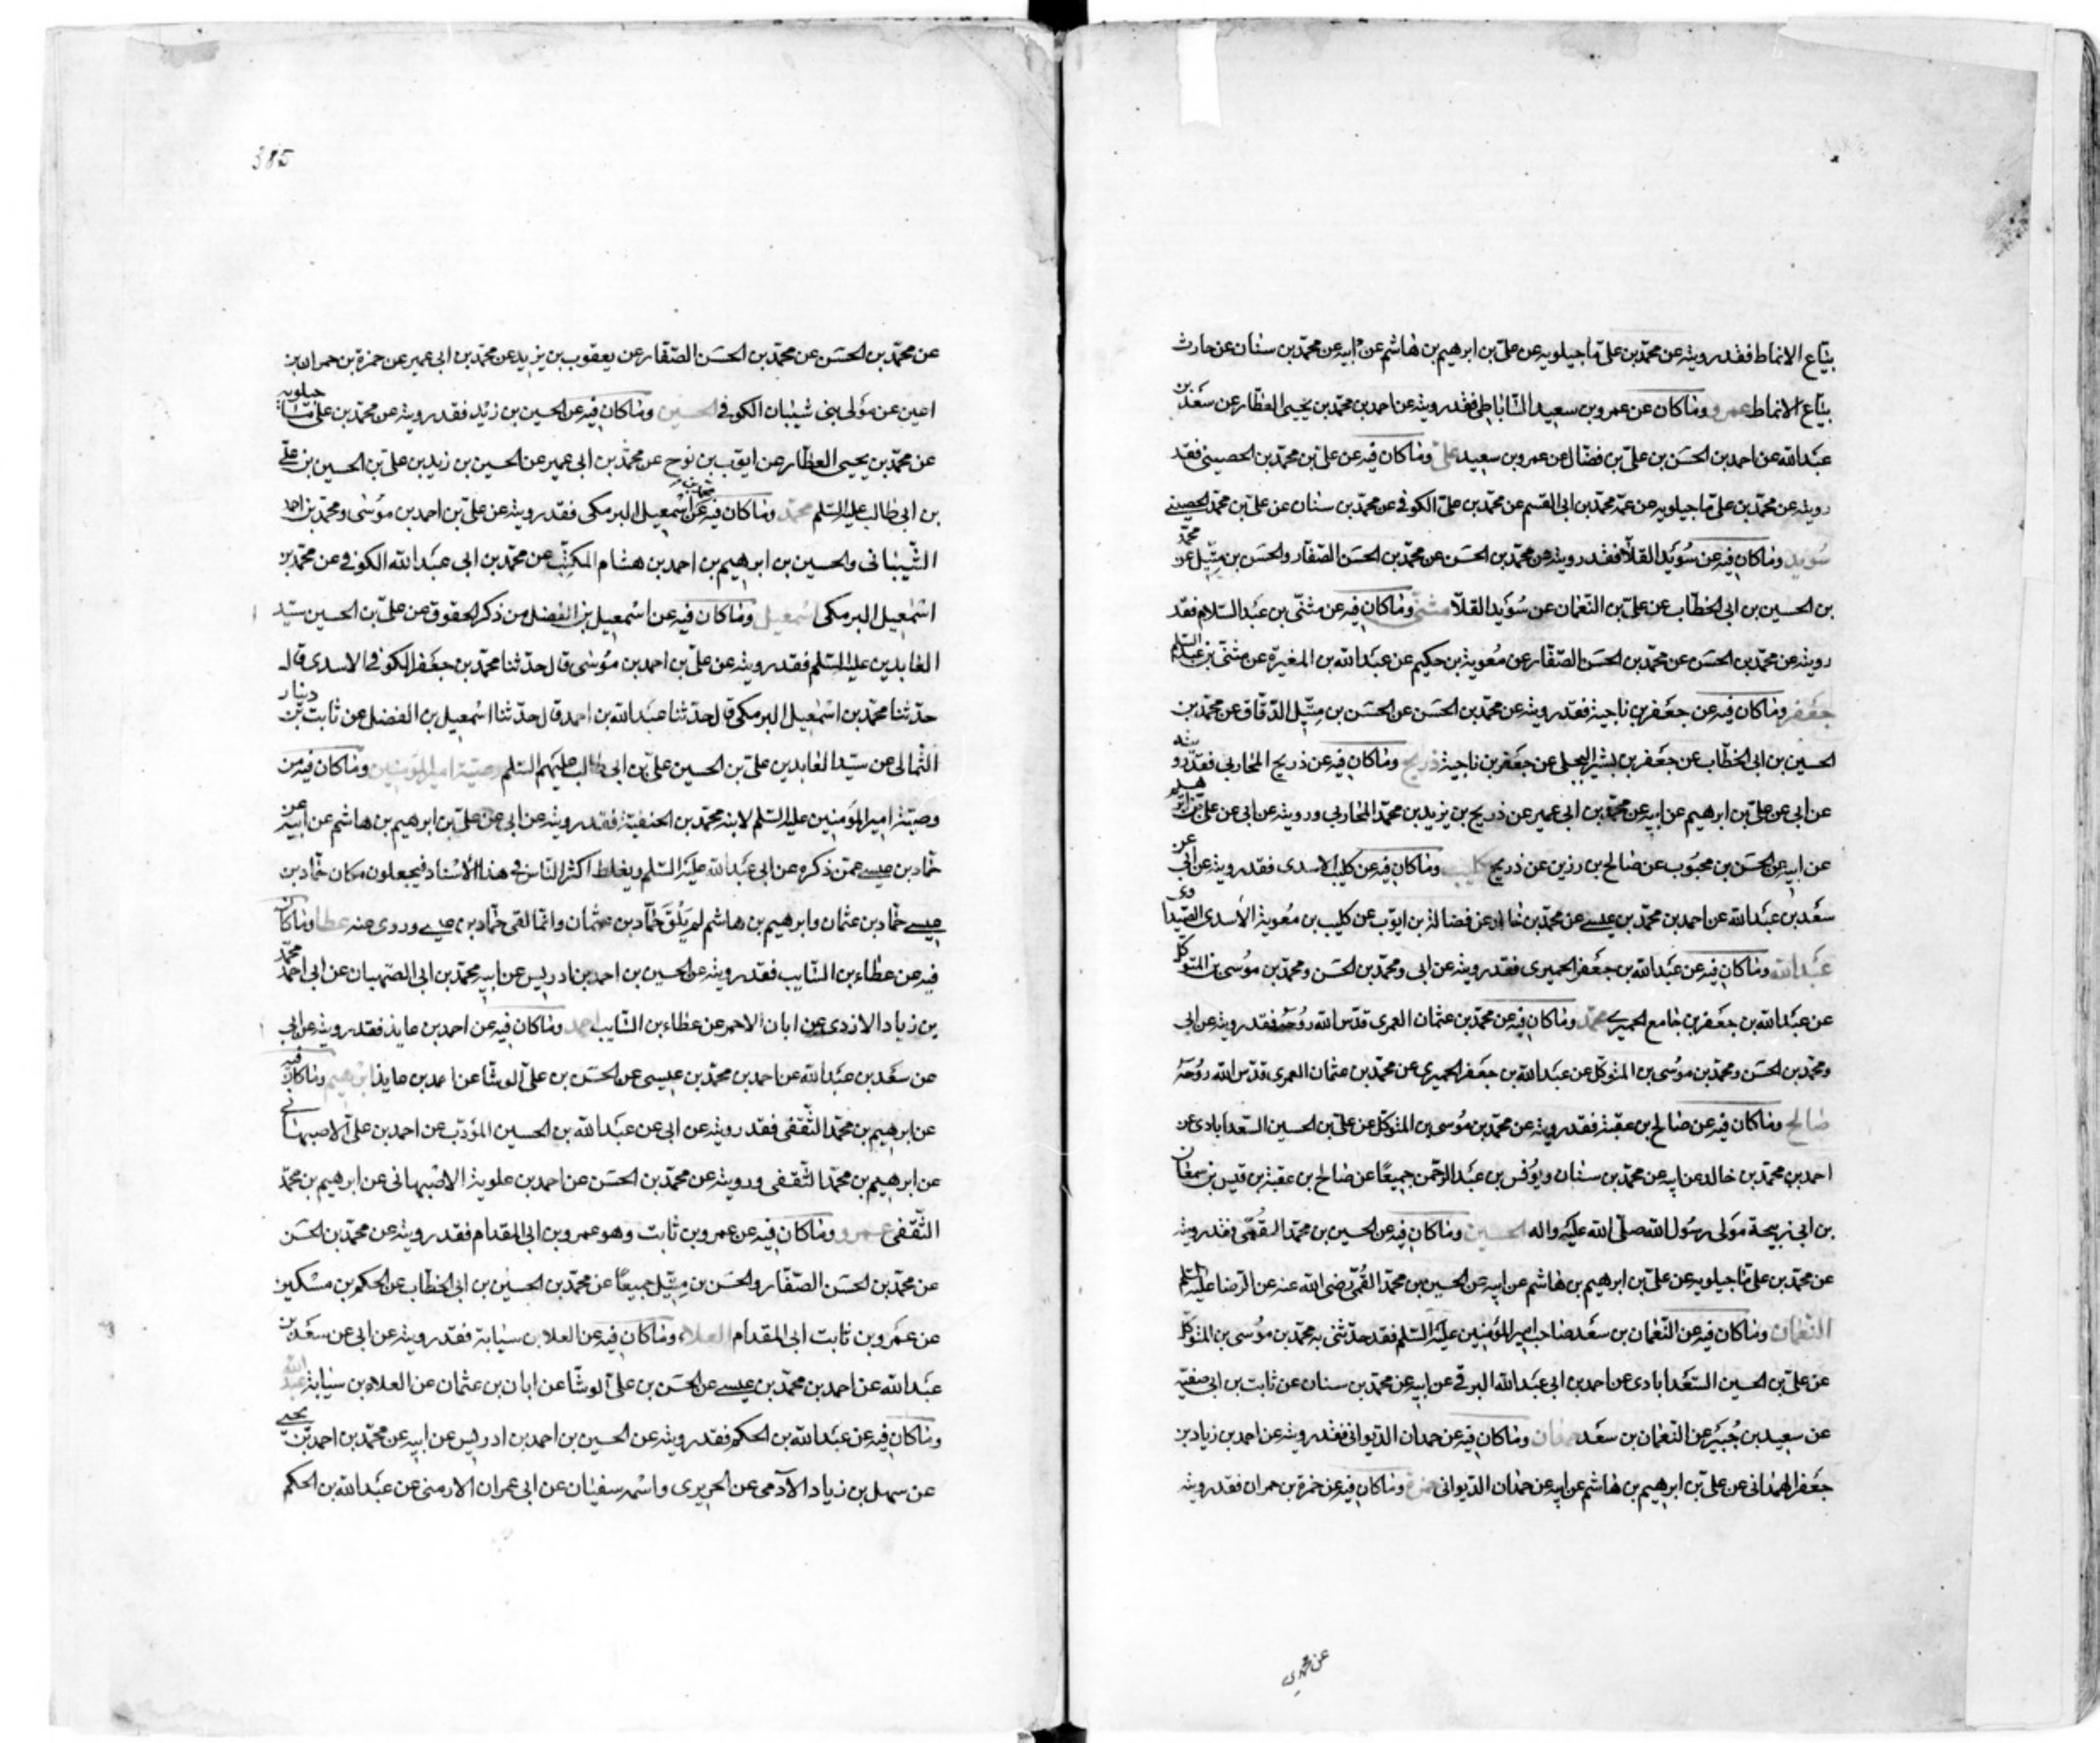 بيّاع الانماط فقد رويته عن محمّد بن علىّ ماجيلويه عن علىّ بن ابرهيم بن هاشم عن ابيه عن محمّد بن سنان عن حارث
بيّاع الانماط عمرو وما كان عن عمرو بن سعيد السّاباطى فقد رويته عن احمد بن محمّد بن يحيى العطّار عن سعد بن
عبد الله عن احمد بن الحسَن بن علىّ بن فضّال عن عمرو بن سعيد علىّ وما كان فيه عن علىّ بن محمّد بن الحصينى فقد
رويته عن محمّد بن علىّ ماجيلويه عن عمّه محمّد بن ابى القسم عن محمّد بن علىّ الكوفى عن محمّد بن سنان عن علىّ بن محمّد الحصينى
سُويد وما كان فيه عن سُوَيد القلّا فقد رويته عن محمّد بن الحسَن عن محمّد بن الحسَن الصّفّار والحسَن بن متّيل عن محمّد
بن الحسين بن ابى الخطّاب عن علىّ بن النّعمان عن سُوَيد القلّا مثنّى وما كان فيه عن مثنّى بن عبد السّلام فقد
رويته عن محمّد بن الحسَن عن محمّد بن الحسَن الصّفّار عن مُعوية بن حكيم عن عبد الله بن المغيرة عن مثنّى بن عبد السّلم
جعفر وما كان فيه عن جعَفر بن ناجية فقد رويته عن محمّد بن الحسَن عن الحسَن بن متّيل الدّقّاق عن محمّد بن
الحسين بن ابى الخطّاب عن جعَفر بن بشير البجلى عن جعَفر بن ناجية ذريح وما كان فيه عن ذريح المحاربى فقد رويته
عن ابى عن علىّ بن ابرهيم عن ابيه عن محمّد بن ابى عمير عن ذريح بن يزيد بن محمّد المحاربى ورويته عن ابى عن علىّ بن ابرهيم
عن ابيه عن الحسَن بن محبُوب عن صالح بن رزين عن ذريح كليب وما كان فيه عن كليب الاسدى فقد رويته عن ابى عن
سعَد بن عبَد الله عن احمد بن محمّد بن عيسى عن محمّد بن خالد عن فضالة بن ايّوب عن كليب بن مُعوية الاسدى الصّيداوى
عبَد الله وما كان فيه عن عبَد الله بن جعَفر الحميرى فقد رويته عن ابى ومحمّد بن الحسَن ومحمّد بن مُوسى بن المتوكّل
عن عبَد الله بن جعَفر بن جامع الحميرى محمّد وما كان فيه عن محمّد بن عثمان العمرى قدّس الله رُوحَهُ فقد رويته عن ابى
ومحمّد بن الحسَن ومحمّد بن موُسى بن المتوكّل عن عبَد الله بن جعَفر الحميرى عن محمّد بن عثمان العمرى قدّس الله رُوحَهُ
صالح وما كان فيه عن صالح بن عقبة فقد رويته عن محمّد بن مُوسى بن المتوكّل عن علىّ بن الحسين السّعدآبادى عن
احمد بن محمّد بن خالد عن ابيه عن محمّد بن سنان ويُونس بن عبَد الرّحمن جميعًا عن صالح بن عقبة بن قيس بن سمعان
بن ابى زبيحة مَولى رسُول الله صلّى الله عليَه واله الحسين وما كان فيه عن الحسين بن محمّد القُمّى فقد رويته
عن محمّد بن علىّ ماجيلويه عن علىّ بن ابرهيم بن هاشم عن ابيه عن الحسين بن محمّد القُمّى رضى الله عنه عن الرّضا عليه السّلم
النّعمان وما كان فيه عن النّعمان بن سعَد صاحب امير المؤمنين عليَه السّلم فقد حدّثنى به محمّد بن موُسى بن المتوكّل
عن علىّ بن الحسين السّعَدابادى عن احمد بن ابى عبَد الله البرقى عن ابيه عن محمّد بن سنان عن ثابت بن ابى صفيّة
عن سعيد بن جُبَير عن النّعمان بن سعَد حمدان وما كان فيه عن حمدان الدّيوانى فقد رويته عن احمد بن زياد بن
جعَفر الهمدانى عن علىّ بن ابرهيم بن هاشم عن ابيه عن حمدان الدّيوانى حمزة وما كان فيه عن حمزة بن حمران فقد رويته
عن محمّد بن
385
عن محمّد بن الحسَن عن محمّد بن الحسَن الصّفّار عن يعقوب بن يزيد عن محمّد بن ابى عمير عن حمزة بن حمران بن
اعين عن مَولى بنى شيبان الكوفى الحسين وما كان فيه عن الحسين بن زيْد فقد رويته عن محمّد بن علىّ ماجيلويه
عن محمّد بن يحيى العطّار عن ايّوب بن نوح عن محمّد بن ابى عمير عن الحسين بن زيد بن علىّ بن الحسين بن علىّ
بن ابى طالب عليه السّلم محمّد وما كان فيه عن محمّد بن اسْمعيل البرمكى فقد رويته عن علىّ بن احمد بن موُسى ومحمّد بن احمد
الشّيبانى والحسين بن ابرهيم بن احمد بن هشام المكتّب عن محمّد بن ابى عبَد الله الكوفى عن محمّد بن
اسْمعيل البرمكى اسْمعيل وما كان فيه عن اسْمعيل بن الفضل من ذكر الحقوق عن علىّ بن الحسين سيّد
العابدين عليه السّلم فقد رويته عن علىّ بن احمد بن مُوسى قال حدّثنا محمّد بن جعَفر الكوفى الاسدى قال
حدّثنا محمّد بن اسْمعيل البرمكى قال حدّثنا عبَد الله بن احمد قال حدّثنا اسْمعيل بن الفضل عن ثابت بن دينار
الثّمالى عن سيّد العابدين علىّ بن الحسين علىّ بن ابى طالب عليهم السّلم وصيّة امير المؤمنين وما كان فيه من
وصيّة امير المؤمنين عليه السّلم لابنه محمّد بن الحنفيّة فقد رويته عن ابى عن علىّ بن ابرهيم بن هاشم عن ابيه عن
حمّاد بن عيسى عمّن ذكره عن ابى عبَد الله عليَه السّلم ويغلط اكثر النّاس فى هذا الاسْناد فيجعلون مكان حمّاد بن
عيسى حمّاد بن عثمان وابرهيم بن هاشم لم يَلْقَ حمّاد بن عثمان وانّما لقى حمّاد بن عيسى وروى عنه عطا وما كان
فيه عن عطاء بن السّايب فقد رويته عن الحسين بن احمد بن ادريس عن ابيه محمّد بن ابى الصّهبان عن ابى احمد محمّد
بن زياد الازدى عن ابان الاحمر عن عطاء بن السّايب احمد وما كان فيه عن احمد بن عايذ فقد رويته عن ابى
عن سعَد بن عبَد الله عن احمد بن محمّد بن عيسى عن الحسَن بن علىّ الوشّا عن احمد بن عايذ ابرهيم وما كان فيه
عن ابرهيم بن محمّد الثّقفى فقد رويته عن ابى عن عبَد الله بن الحسين المؤدّب عن احمد بن علىّ الاصبهانى
عن ابرهيم بن محمّد الثّقفى ورويته عن محمّد بن الحسَن عن احمد بن علوية الاصْبهانى عن ابرهيم بن محمّد
الثّقفى عمرو وما كان فيه عن عمرو بن ثابت وهو عمرو بن ابى المقدام فقد رويته عن محمّد بن الحسَن
عن محمّد بن الحسَن الصّفّار والحسَن بن متّيل جميعًا عن محمّد بن الحسين بن ابى الخطّاب عن الحكم بن مسْكين
عن عَمرو بن ثابت ابى المقدام العلاء وما كان فيه عن العلا بن سيابة فقد رويته عن ابى عن سعَد بن
عبَد الله عن احمد بن محمّد بن عيسى عن الحسَن بن علىّ الوشّا عن ابان بن عثمان عن العلاء بن سيابة عبد الله
وما كان فيه عن عبَد الله بن الحكم فقد رويته عن الحسين بن احمد بن ادريس عن ابيه عن محمّد بن احمد بن يحيى
عن سهل بن زياد الآدمى عن الجريرى واسْمه سفيان عن ابى عمران الارمنى عن عبَد الله بن الحكم